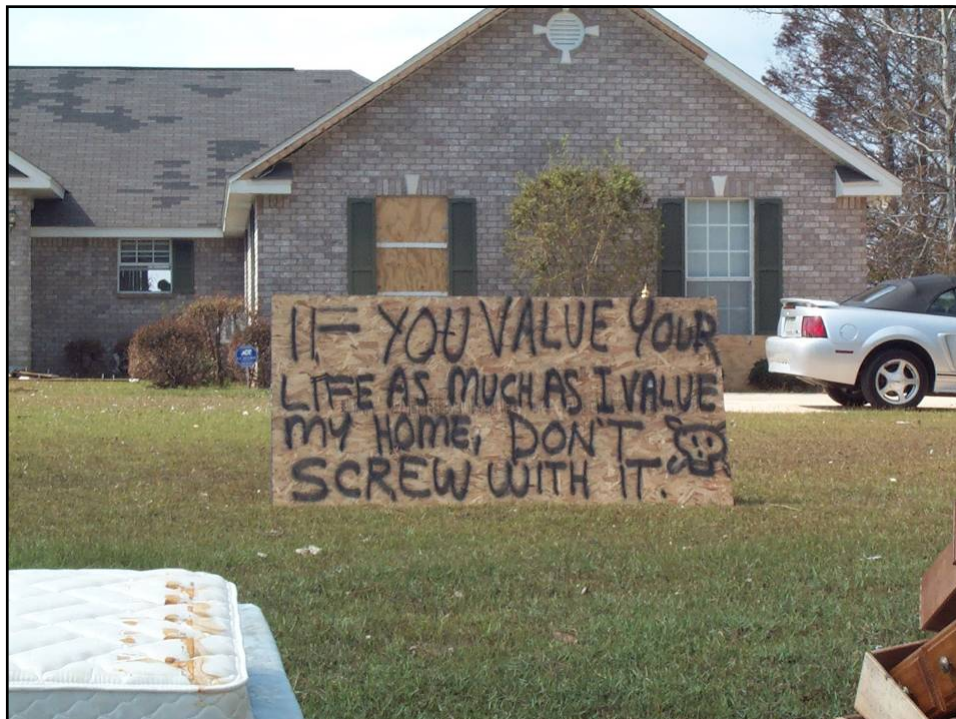 IF YOU VALUE YOUR
LIFE AS MUCH AS I VALUE
MY HOME, DON'T
SCREW WITH IT.
ADT